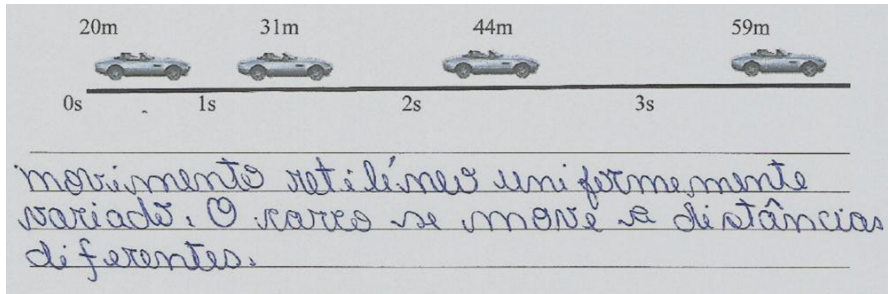 20m 31m 44m 59m
0s 1s 2s 3s
movimento retilíneo uniformemente
variado. O carro se move a distâncias
diferentes.